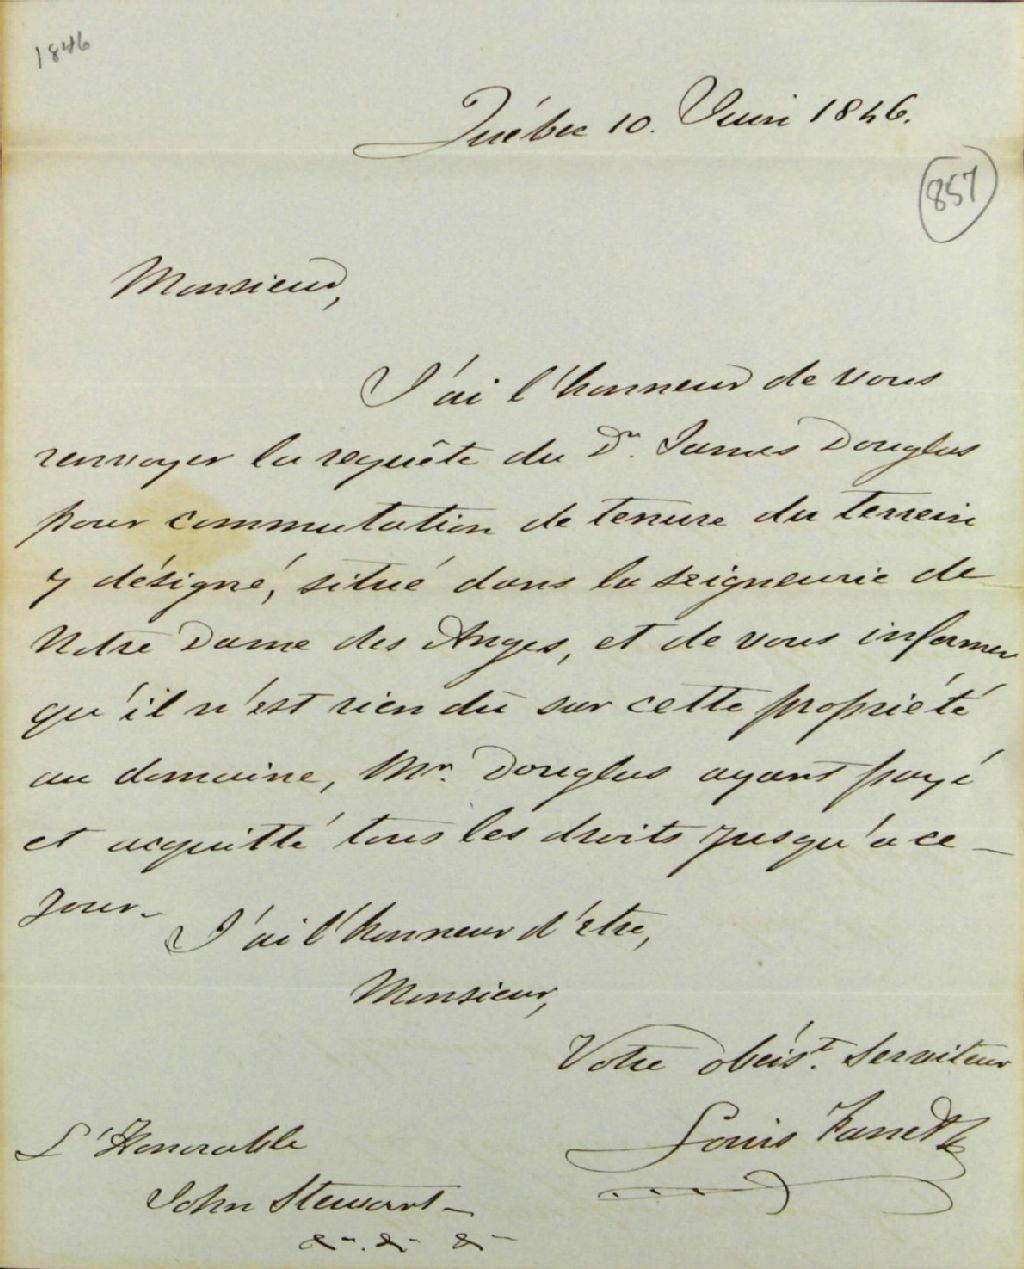 1846
Québec 10. Juin 1846.
857
Monsieur,
J'ai l'honneur de vous
renvoyer la requête du Dr. James Douglas
pour commutation de tenure du terrein
y désigné, situé dans la seigneurie de
Notre Dame des Anges, et de vous informer
qu'il n'est rien dû sur cette propriété
au domaine, Mr. Douglas ayant payé
et acquitté tous les droits jusqu'à ce
jour.
J'ai l'honneur d'être,
Monsieur,
Votre obéist. Serviteur
Louis Panet
L'Honorable
John Stewart
&. &. &